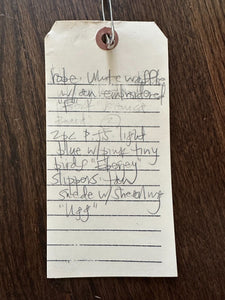 robe. white waffle
w/ an embroidered
"F"
2pc PJ's light
blue w/ pink tiny
birds "Eberjey
slippers. tan
suede w shearling
"Ugg"